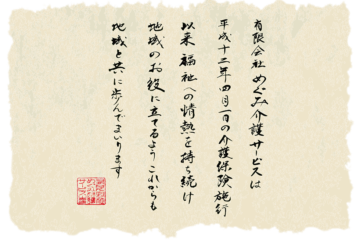 有限会社 めぐみ介護サービスは
平成十二年四月一日の介護保険施行
以来 福祉への情熱を持ち続け
地域のお役に立てるようこれからも
地域と共に歩んでまいります